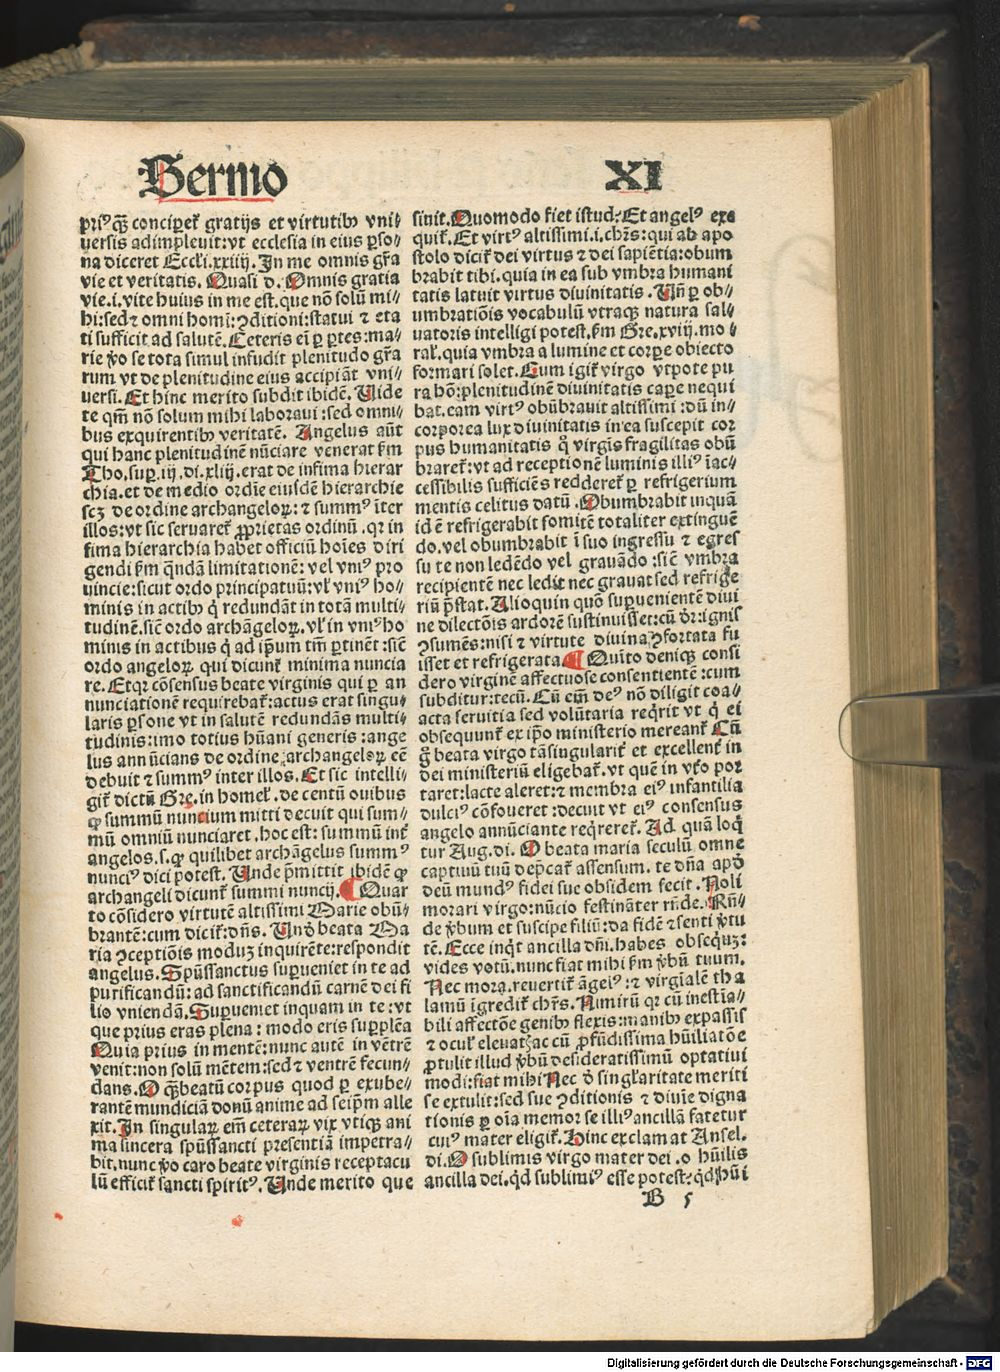 Sermo
XI
priꝰ qᷓꝫ conciperꝫ gratijs et virtutibꝰ vni⸗
uersis adimpleuit:vt ecclesia in eius ꝑso⸗
na diceret Eccli.xxiiij. In me omnis gr̄a
vie et veritatis. Quasi d. Omnis gratia
vie.i.vite huius in me est.que nō solū mi⸗
hi:sed ⁊ omni homī:ꝯditioni:statui ⁊ eta
ti sufficit ad salutē. Ceteris eī ꝑ ꝑtes:ma⸗
rie v̄o se tota simul infudit plenitudo gr̄a
rum vt de plenitudine eius accipiāt vni⸗
uersi. Et hinc merito subdit ibidē. Uide
te qm̄ nō solum mihi laboraui:sed omni⸗
bus exquirentibꝰ veritatē. Angelus aūt
qui hanc plenitudinē nūciare venerat ẜm
Tho.suꝑ.iij.di.xliij.erat de infima hierar
chia.et de medio ordīe eiusdē hierarchie
scꝫ de ordine archangeloꝝ:⁊ summꝰ īter
illos:vt sic seruareꝉ ꝓprietas ordinū.qꝛ in
fima hierarchia habet officiū hoīes diri
gendi ẜm qͥndā limitationē:vel vniꝰ pro
uincie:sicut ordo principatuū:vꝉ vniꝰ ho⸗
minis in actibꝰ q̇ redundāt in totā multi⸗
tudinē.sic̄ ordo archāgeloꝝ.vꝉ in vniꝰ ho
minis in actibus q̇ ad ip̄um tm̄ ꝑtinēt:sic̄
ordo angeloꝝ qui dicunꝉ minima nuncia
re. Etqꝛ cōsensus beate virginis qui ꝑ an
nunciationē requirebaꝉ:actus erat singu⸗
laris ꝑsone vt in salutē redundās multi⸗
tudinis:imo totius hūani generis:ange
lus annūcians de ordine archangeloꝝ eē
debuit ⁊ summꝰ inter illos. Et sic intelli⸗
giꝉ dictū Gre.in homeꝉ.de centū ouibus
ꝙ summū nuncium mitti decuit qui sum⸗
mū omniū nunciaret.hoc est: summū inꝉ
angelos.s.ꝙ quilibet archāgelus summꝰ
nunciꝰ dici potest. Unde p̄mittit ibidē ꝙ
archangeli dicunꝉ summi nuncij. ¶ Quar
to cōsidero virtutē altissimi Marie obū⸗
brantē:cum diciꝉ:dn̄s. Un̄ ꝙ beata Ma
ria ꝯceptiōis moduꝫ inquirēte:respondit
angelus. Spūssanctus suꝑueniet in te ad
purificandū:ad sanctificandū carnē dei fi
lio vniendā. Suꝑueniet inquam in te:vt
que prius eras plena: modo eris suꝑplēa
Quia prius in mentē:nunc autē in vētrē
venit:non solū mētem:sed ⁊ ventrē fecun⸗
dans. O qᷓꝫ beatū corpus quod ꝑ exube⸗
rantē mundiciā donū anime ad seip̄m alle
xit. In singulaꝝ em̄ ceteraꝝ vix vtiqꝫ ani
ma sincera spūssancti presentiā impetra⸗
bit.nunc v̄o caro beate virginis receptacu
lū efficiꝉ sancti spiritꝰ. Unde merito que
siuit. Quomodo fiet istud: Et angelꝰ exe
quiꝉ. Et virtꝰ altissimi.i.chr̄s:qui ab apo
stolo diciꝉ dei virtus ⁊ dei sapiētia:obum
brabit tibi.quia in ea sub vmbra humani
tatis latuit virtus diuinitatis. Un̄ ꝑ ob⸗
umbratiōis vocabulū vtraqꝫ natura sal⸗
uatoris intelligi potest.ẜm Gre.xviij.mo⸗
raꝉ.quia vmbra a lumine et corpe obiecto
formari solet. Cum igiꝉ virgo vtpote pu
ra hō:plenitudinē diuinitatis caꝑe nequi
bat.eam virtꝰ obūbrauit altissimi:dū in⸗
corporea lux diuinitatis in ea suscepit cor
pus humanitatis q̇ virgīs fragilitas obū
brareꝉ:vt ad receptionē luminis illiꝰ īac⸗
cessibilis sufficiēs reddereꝉ ꝑ refrigerium
mentis celitus datū. Obumbrabit inquā
id ē refrigerabit fomitē totaliter extinguē
do.vel obumbrabit ī suo ingressu ⁊ egres
su te non ledēdo vel grauādo:sic̄ vmbra
recipientē nec ledit nec grauat sed refrige
riū p̄stat. Alioquin quō suꝑuenientē diui
ne dilectōis ardorē sustinuisset:cū dr̄:ignis
ꝯsumēs:nisi ⁊ virtute diuina ꝯfortata fu
isset et refrigerata. ¶ Quīto deniqꝫ consi
dero virginē affectuose consentientē:cum
subditur:tecū. Cū em̄ deꝰ nō diligit coa⸗
acta seruitia sed volūtaria req̇rit vt q̇ ei
obsequunꝉ ex ip̄o ministerio mereanꝉ Cū
g̊ beata virgo tā singulariꝉ et excellenꝉ in
dei ministeriū eligebaꝉ.vt quē in vt̓o por
taret:lacte aleret:⁊ membra eiꝰ infantilia
dulciꝰ cōfoueret:decuit vt eiꝰ consensus
angelo annūciante req̇rereꝉ. Ad quā loq̇
tur Aug.di. O beata maria seculū omne
captiuū tuū dep̄caꝉ assensum. te dn̄a apd̓
deū mundꝰ fidei sue obsidem fecit. Noli
morari virgo:nūcio festināter rn̄de. Rn̄⸗
de v̄bum et suscipe filiū:da fidē ⁊ senti v̄tu
tē. Ecce inq̇t ancilla dn̄i.habes obsequꝫ:
vides votū.nunc fiat mihi ẜm v̄bū tuum.
Nec mora.reuertiꝉ āgelꝰ:⁊ virgīalē tha
lamū īgrediꝉ chr̄s. Nimirū qꝛ cū inestīa⸗
bili affectōe genibꝰ flexis:manibꝰ expassis
⁊ oculꝉ eleuatꝭ ac cū ꝓfūdissima hūiliatōe
ꝓtulit illud v̄bū desideratissimū optatiui
modi:fiat mihi Nec d̓ singꝉaritate meriti
se extulit:sed sue ꝯditionis ⁊ diuīe digna
tionis ꝑ oīa memor se illiꝰ ancillā fatetur
cuiꝰ mater eligiꝉ. Hinc exclamat Ansel.
di. O sublimis virgo mater dei.o hūilis
ancilla dei.qd̓ sublimiꝰ esse potest:qd̓ hūi
B 5
Digitalisierung gefördert durch die Deutsche Forschungsgemeinschaft - DFG